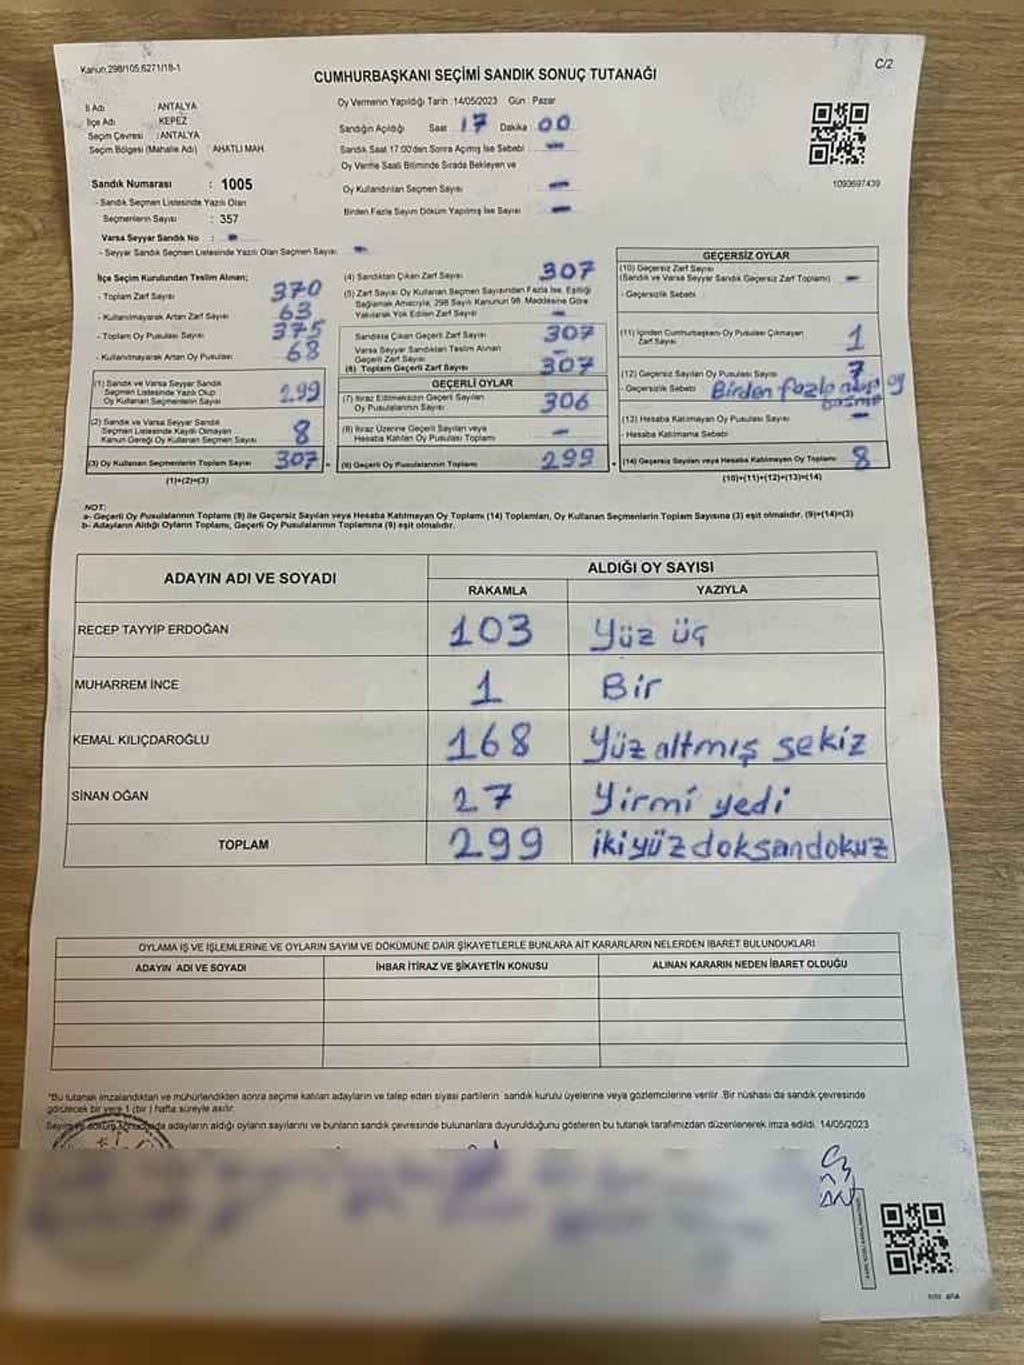 Kanun 298/105,6271/18-1
C/2
CUMHURBAŞKANI SEÇİMİ SANDIK SONUÇ TUTANAĞI
İl Adı : ANTALYA
İlçe Adı : KEPEZ
Seçim Çevresi : ANTALYA
Seçim Bölgesi (Mahalle Adı) : AHATLI MAH.
Sandık Numarası : 1005
- Sandık Seçmen Listesinde Yazılı Olan
Seçmenlerin Sayısı : 357
Varsa Seyyar Sandık No : -
- Seyyar Sandık Seçmen Listesinde Yazılı Olan Seçmen Sayısı : -
Oy Vermenin Yapıldığı Tarih : 14/05/2023 Gün : Pazar
Sandığın Açıldığı Saat 17 Dakika : 00
Sandık Saat 17:00'den Sonra Açımış İse Sebebi : -
Oy Verme Saati Bitiminde Sırada Bekleyen ve
Oy Kullandırılan Seçmen Sayısı : -
Birden Fazla Sayım Döküm Yapılmış İse Sayısı : -
1093697439
İlçe Seçim Kurulundan Teslim Alınan;
- Toplam Zarf Sayısı : 370
- Kullanılmayarak Artan Zarf Sayısı : 63
- Toplam Oy Pusulası Sayısı : 375
- Kullanılmayarak Artan Oy Pusulası : 68
(1) Sandık ve Varsa Seyyar Sandık
Seçmen Listesinde Yazılı Olup
Oy Kullanan Seçmenlerin Sayısı : 299
(2) Sandık ve Varsa Seyyar Sandık
Seçmen Listesinde Kayıtlı Olmayan
Kanun Gereği Oy Kullanan Seçmen Sayısı : 8
(3) Oy Kullanan Seçmenlerin Toplam Sayısı : 307
(1)+(2)=(3)
(4) Sandıktan Çıkan Zarf Sayısı : 307
(5) Zarf Sayısı Oy Kullanan Seçmen Sayısından Fazla İse, Eşitliği
Sağlamak Amacıyla, 298 Sayılı Kanunun 98. Maddesine Göre
Yakılarak Yok Edilen Zarf Sayısı : -
Sandıkta Çıkan Geçerli Zarf Sayısı : 307
Varsa Seyyar Sandıktan Teslim Alınan
Geçerli Zarf Sayısı : -
(6) Toplam Geçerli Zarf Sayısı : 307
GEÇERLİ OYLAR
(7) İtiraz Edilmeksizin Geçerli Sayılan
Oy Pusulalarının Sayısı : 306
(8) İtiraz Üzerine Geçerli Sayılan veya
Hesaba Katılan Oy Pusulası Toplamı : -
(9) Geçerli Oy Pusulalarının Toplamı : 299
GEÇERSİZ OYLAR
(10) Geçersiz Zarf Sayısı
(Sandık ve Varsa Seyyar Sandık Geçersiz Zarf Toplamı) : -
- Geçersizlik Sebebi :
(11) İçinden Cumhurbaşkanı Oy Pusulası Çıkmayan
Zarf Sayısı : 1
(12) Geçersiz Sayılan Oy Pusulası Sayısı : 7
- Geçersizlik Sebebi : Birden fazla
(13) Hesaba Katılmayan Oy Pusulası Sayısı : -
- Hesaba Katılmama Sebebi :
(14) Geçersiz Sayılan veya Hesaba Katılmayan Oy Toplamı : 8
(10)+(11)+(12)+(13)=(14)
NOT:
a- Geçerli Oy Pusulalarının Toplamı (9) ile Geçersiz Sayılan veya Hesaba Katılmayan Oy Toplamı (14) Toplamları, Oy Kullanan Seçmenlerin Toplam Sayısına (3) eşit olmalıdır. (9)+(14)=(3)
b- Adayların Aldığı Oyların Toplamı, Geçerli Oy Pusulalarının Toplamına (9) eşit olmalıdır.
ADAYIN ADI VE SOYADI
ALDIĞI OY SAYISI
RAKAMLA YAZIYLA
RECEP TAYYİP ERDOĞAN 103 Yüz üç
MUHARREM İNCE 1 Bir
KEMAL KILIÇDAROĞLU 168 Yüz altmış sekiz
SİNAN OĞAN 27 Yirmi yedi
TOPLAM 299 ikiyüzdoksandokuz
OYLAMA İŞ VE İŞLEMLERİNE VE OYLARIN SAYIM VE DÖKÜMÜNE DAİR ŞİKAYETLERLE BUNLARA AİT KARARLARIN NELERDEN İBARET BULUNDUKLARI
ADAYIN ADI VE SOYADI İHBAR İTİRAZ VE ŞİKAYETİN KONUSU ALINAN KARARIN NEDEN İBARET OLDUĞU
"Bu tutanak imzalandıktan ve mühürlendikten sonra seçime katılan adayların ve talep eden siyasi partilerin sandık kurulu üyelerine veya gözlemcilerine verilir. Bir nüshası da sandık çevresinde
görülecek bir yere 1 (bir) hafta süreyle asılır.
adayların aldığı oyların sayılarını ve bunların sandık çevresinde bulunanlara duyurulduğunu gösteren bu tutanak tarafımızdan düzenlenerek imza edildi. 14/05/2023